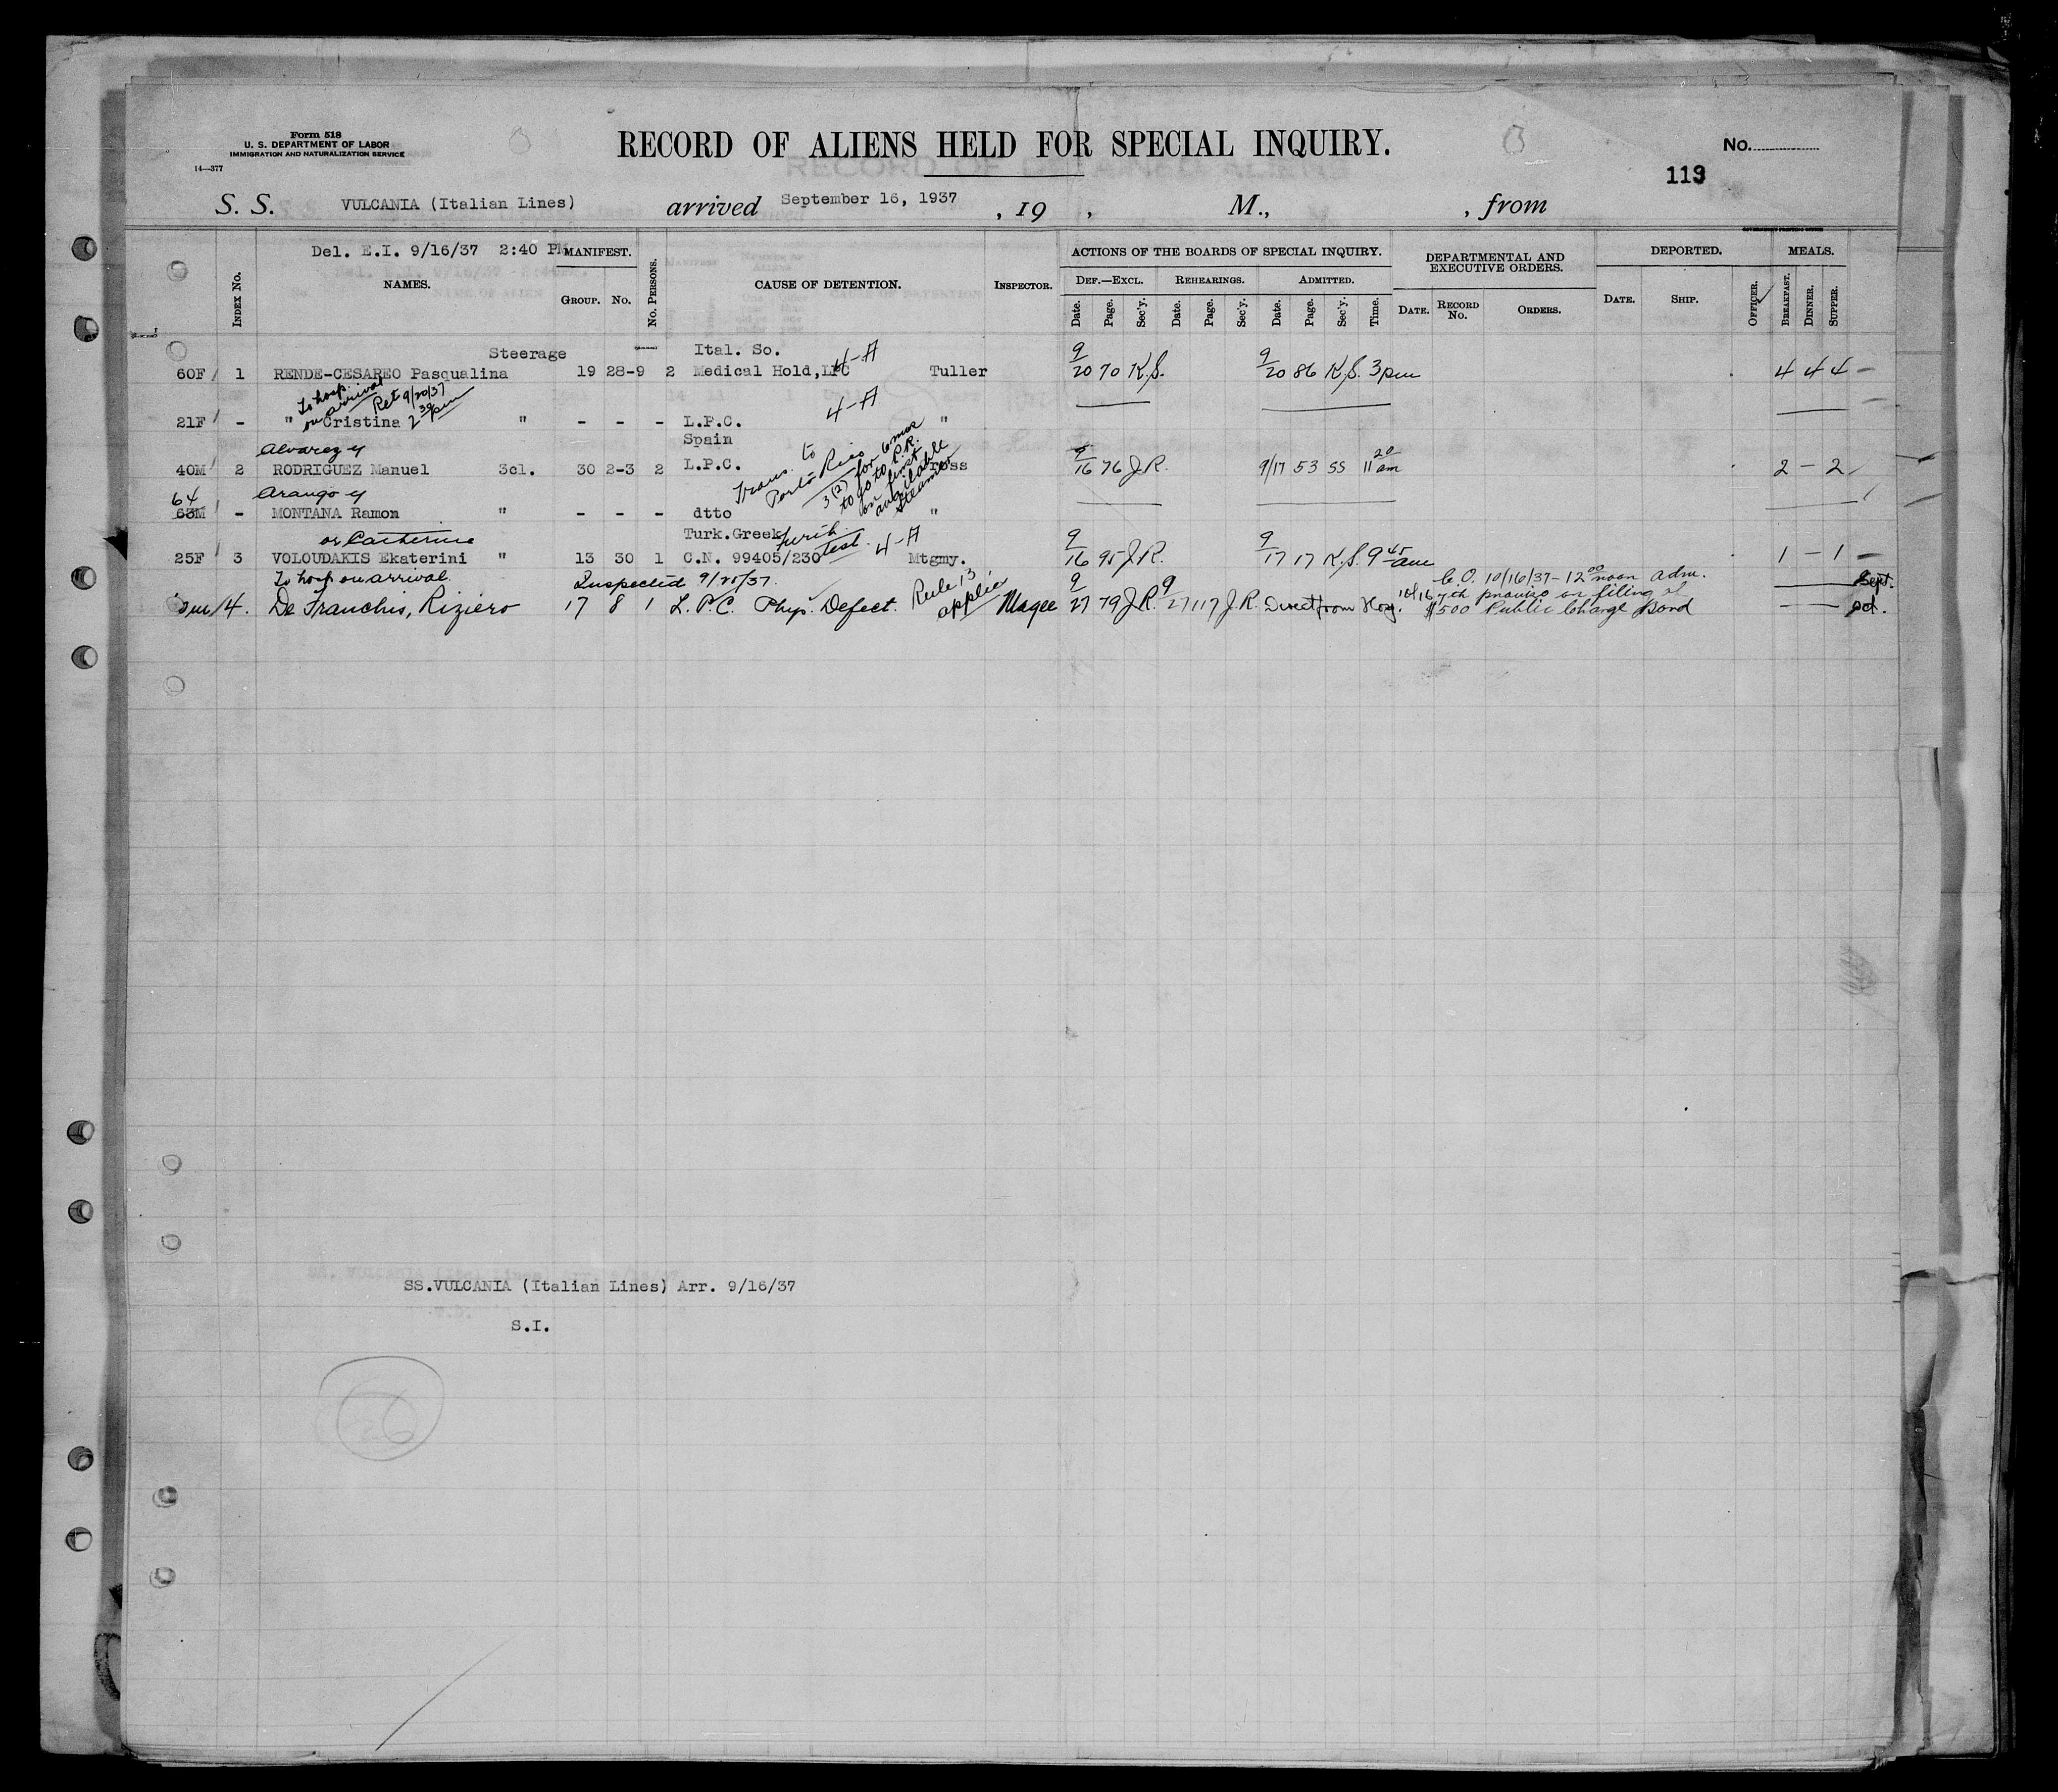 Form 518
U. S. DEPARTMENT OF LABOR
IMMIGRATION AND NATURALIZATION SERVICE
14—377
RECORD OF ALIENS HELD FOR SPECIAL INQUIRY.
No.
113
S. S. VULCANIA (Italian Lines) arrived September 16, 1937 , 19 , M., , from
Del. E.I. 9/16/37 2:40 PM
INDEX No. NAMES. MANIFEST. GROUP. No. No. PERSONS. CAUSE OF DETENTION. INSPECTOR. ACTIONS OF THE BOARDS OF SPECIAL INQUIRY. DEPARTMENTAL AND EXECUTIVE ORDERS. DEPORTED. MEALS.
DEF.—EXCL. REHEARINGS. ADMITTED.
Date. Page. Sec'y. Date. Page. Sec'y. Date. Page. Sec'y. Time. DATE. RECORD No. ORDERS. DATE. SHIP. OFFICER. BREAKFAST. DINNER. SUPPER.
Steerage Ital. So. 4-A
60F 1 RENDE-CESAREO Pasqualina 19 28-9 2 Medical Hold, LPC Tuller 9/20 70 K.S. 9/20 86 K.S. 3pm 4 4 4 —
To hosp. on arrival Ret 9/20/37 2 30 pm
4-A
21F - " Cristina " - - - L.P.C. "
Spain
Alvarez y
40M 2 RODRIGUEZ Manuel 3cl. 30 2-3 2 L.P.C. 9/16 76 J.R. 9/17 53 SS 11 20 am 2 — 2
Trans. to Porto Rico
3(2) for 6 mos to go to P.R. on first available steamer
64 Arango y
63M - MONTANA Ramon " - - - dtto "
or Catherine
Turk.Greek
test. 4-A
25F 3 VOLOUDAKIS Ekaterini " 13 30 1 C.N. 99405/230 Mtgmy. 9/16 95 J.R. 9/17 17 K.S. 9 45 am 1 — 1 —
To hosp on arrival. Inspected
C.O. 10/16/37 - 12 00 noon Adm.
10/16 7th proviso on filing of
4. De Franchis, Riziero 17 8 1 L.P.C. Phys. Defect. Rule 13 applies Magee 9/27 79 J.R. 9/27 117 J.R. Direct from Hosp. $500 Public Charge Bond — —
Sept.
Oct.
SS.VULCANIA (Italian Lines) Arr. 9/16/37
S.I.
26